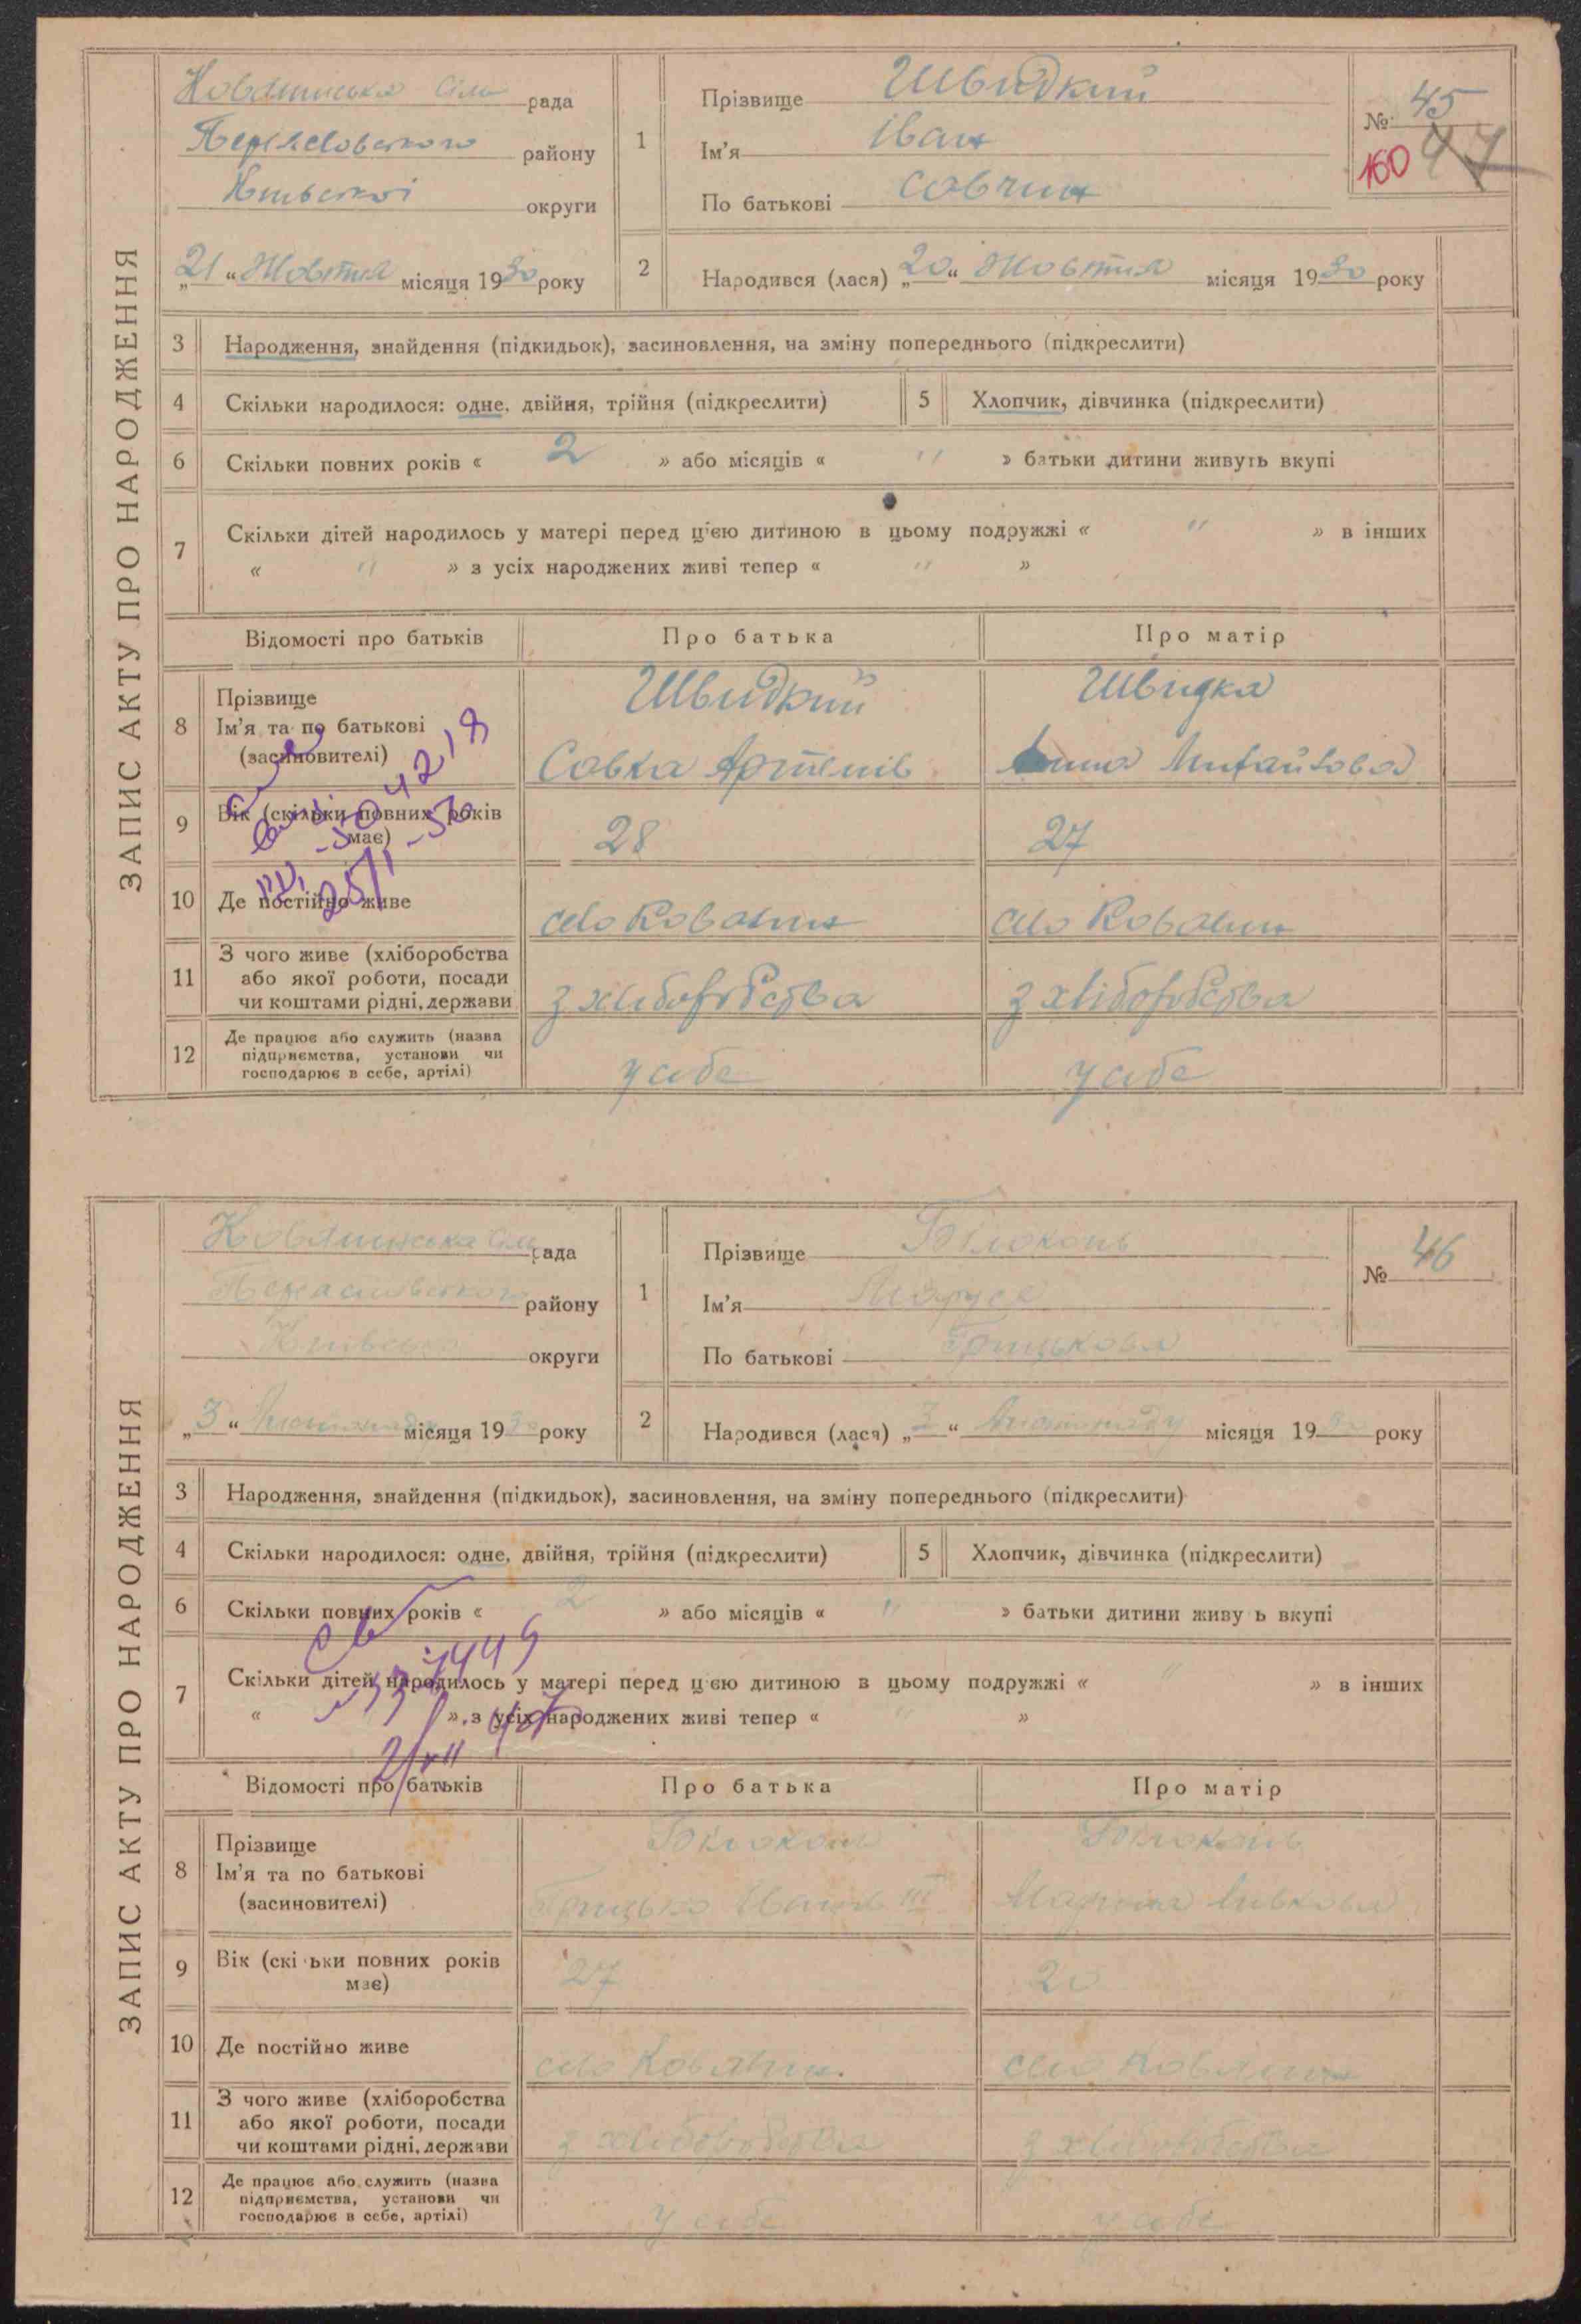 ЗАПИС АКТУ ПРО НАРОДЖЕННЯ
Ковалинська сіль рада
Переяславського району
Київської округи
„21“ Жовтня місяця 1930 року
1
Прізвище Швидкий
Ім'я Іван
По батькові Совчин
№ 45
47
160
2
Народився (лася) „20“ Жовтня місяця 1930 року
3 Народження, знайдення (підкидьок), засиновлення, на зміну попереднього (підкреслити)
4 Скільки народилося: одне, двійня, трійня (підкреслити)
5 Хлопчик, дівчинка (підкреслити)
6 Скільки повних років « 2 » або місяців « " » батьки дитини живуть вкупі
7 Скільки дітей народилось у матері перед цією дитиною в цьому подружжі « " » в інших
« " » з усіх народжених живі тепер « " »
Відомості про батьків Про батька Про матір
8 Прізвище
Ім'я та по батькові
(засиновителі)
Швидкий
Совка Артемів
Швидка
Михайлова
9 Вік (скільки повних років
має)
28
27
10 Де постійно живе
село Ковалин
село Ковалин
11 З чого живе (хліборобства
або якої роботи, посади
чи коштами рідні, держави
з хліборобства
з хліборобства
12 Де працює або служить (назва
підприємства, установи чи
господарює в себе, артілі)
у себе
у себе
ЗАПИС АКТУ ПРО НАРОДЖЕННЯ
Ковалинська сіль рада
Переяславського району
Київської округи
„3“ Листопада місяця 1930 року
1
Прізвище Білоконь
Ім'я Маруся
По батькові Грицькова
№ 46
2
Народився (лася) „3“ Листопаду місяця 1930 року
3 Народження, знайдення (підкидьок), засиновлення, на зміну попереднього (підкреслити)
4 Скільки народилося: одне, двійня, трійня (підкреслити)
5 Хлопчик, дівчинка (підкреслити)
6 Скільки повних років « 2 » або місяців « " » батьки дитини живу ь вкупі
7 Скільки дітей народилось у матері перед цією дитиною в цьому подружжі « " » в інших
« » з усіх народжених живі тепер « " »
Відомості про батьків Про батька Про матір
8 Прізвище
Ім'я та по батькові
(засиновителі)
Білоконь
Грицько Іванів III
Білоконь
Левкова
9 Вік (скі ьки повних років
має)
27
20
10 Де постійно живе
село Ковалин
село Ковалин
11 З чого живе (хліборобства
або якої роботи, посади
чи коштами рідні, держави
з хліборобства
з хліборобства
12 Де працює або служить (назва
підприємства, установи чи
господарює в себе, артілі)
у себе
у себе